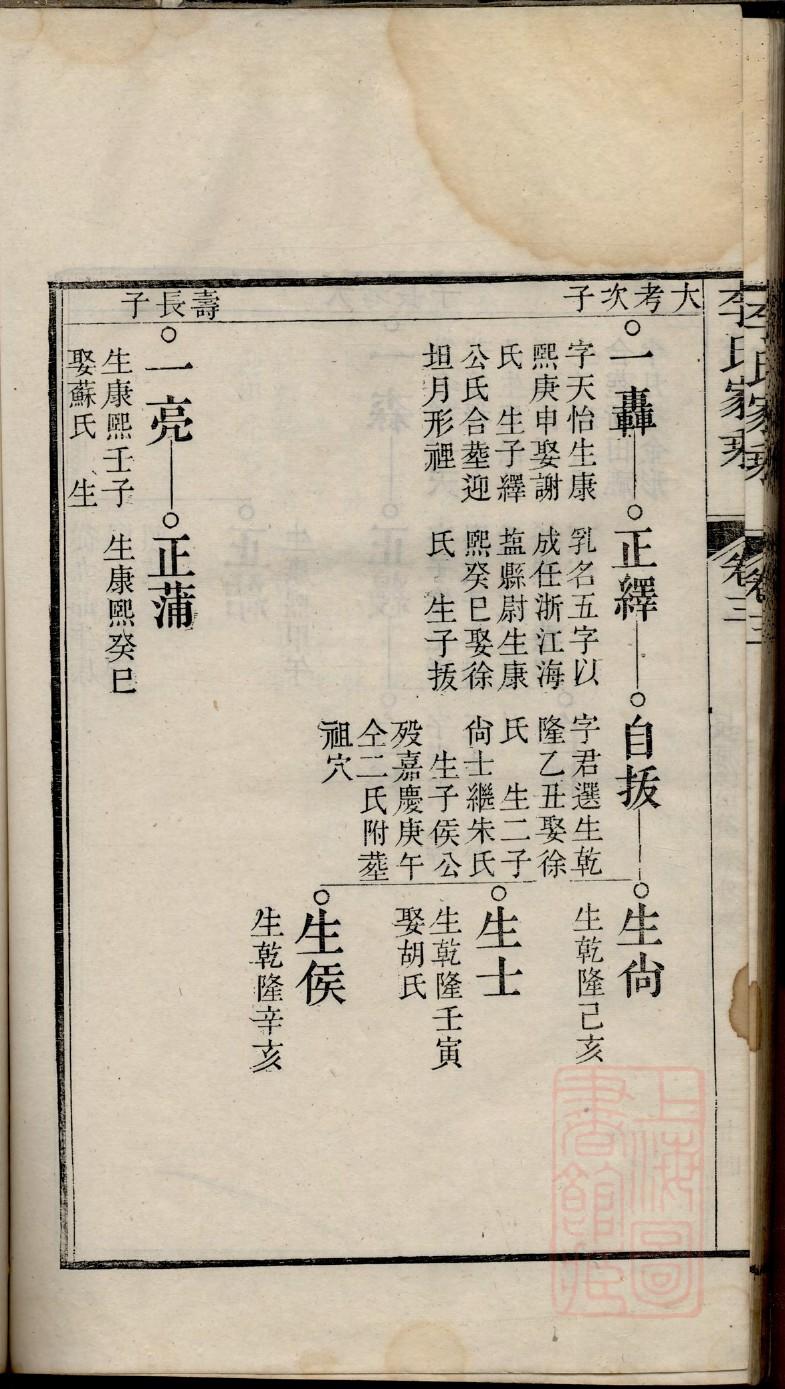 李氏家乘
卷三
大考次子
一轟
字天怡生康
熙庚申娶謝
氏　生子繹
公氏合塟迎
坦月形裡
正繹
乳名五字以
成任浙江海
塩縣尉生康
熙癸巳娶徐
氏　生子拔
自拔
字君選生乾
隆乙丑娶徐
氏　生二子
尙士繼朱氏
生子侯公
殁嘉慶庚午
仝二氏附塟
祖穴
生尙
生乾隆己亥
生士
生乾隆壬寅
娶胡氏
生侯
生乾隆辛亥
壽長子
一亮
生康熙壬子
娶蘇氏　生
正蒲
生康熙癸巳
上海圖
書館藏